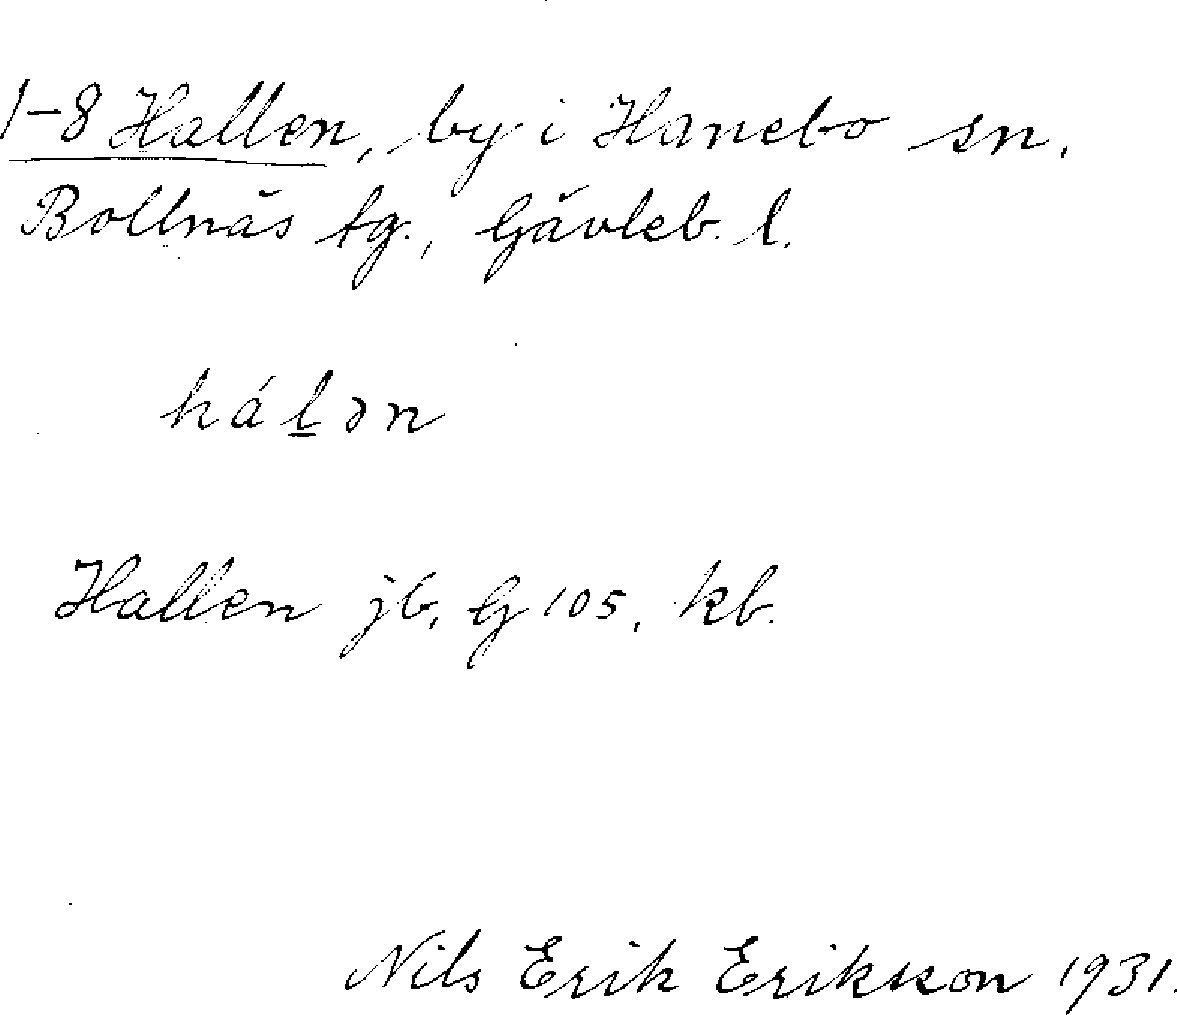 1-8 Hallen, by i Hanebo sn.
Bollnäs tg., Gävleb. l.
hál̲ən
Hallen jb, G 105, kb.
Nils Erik Eriksson 1931.